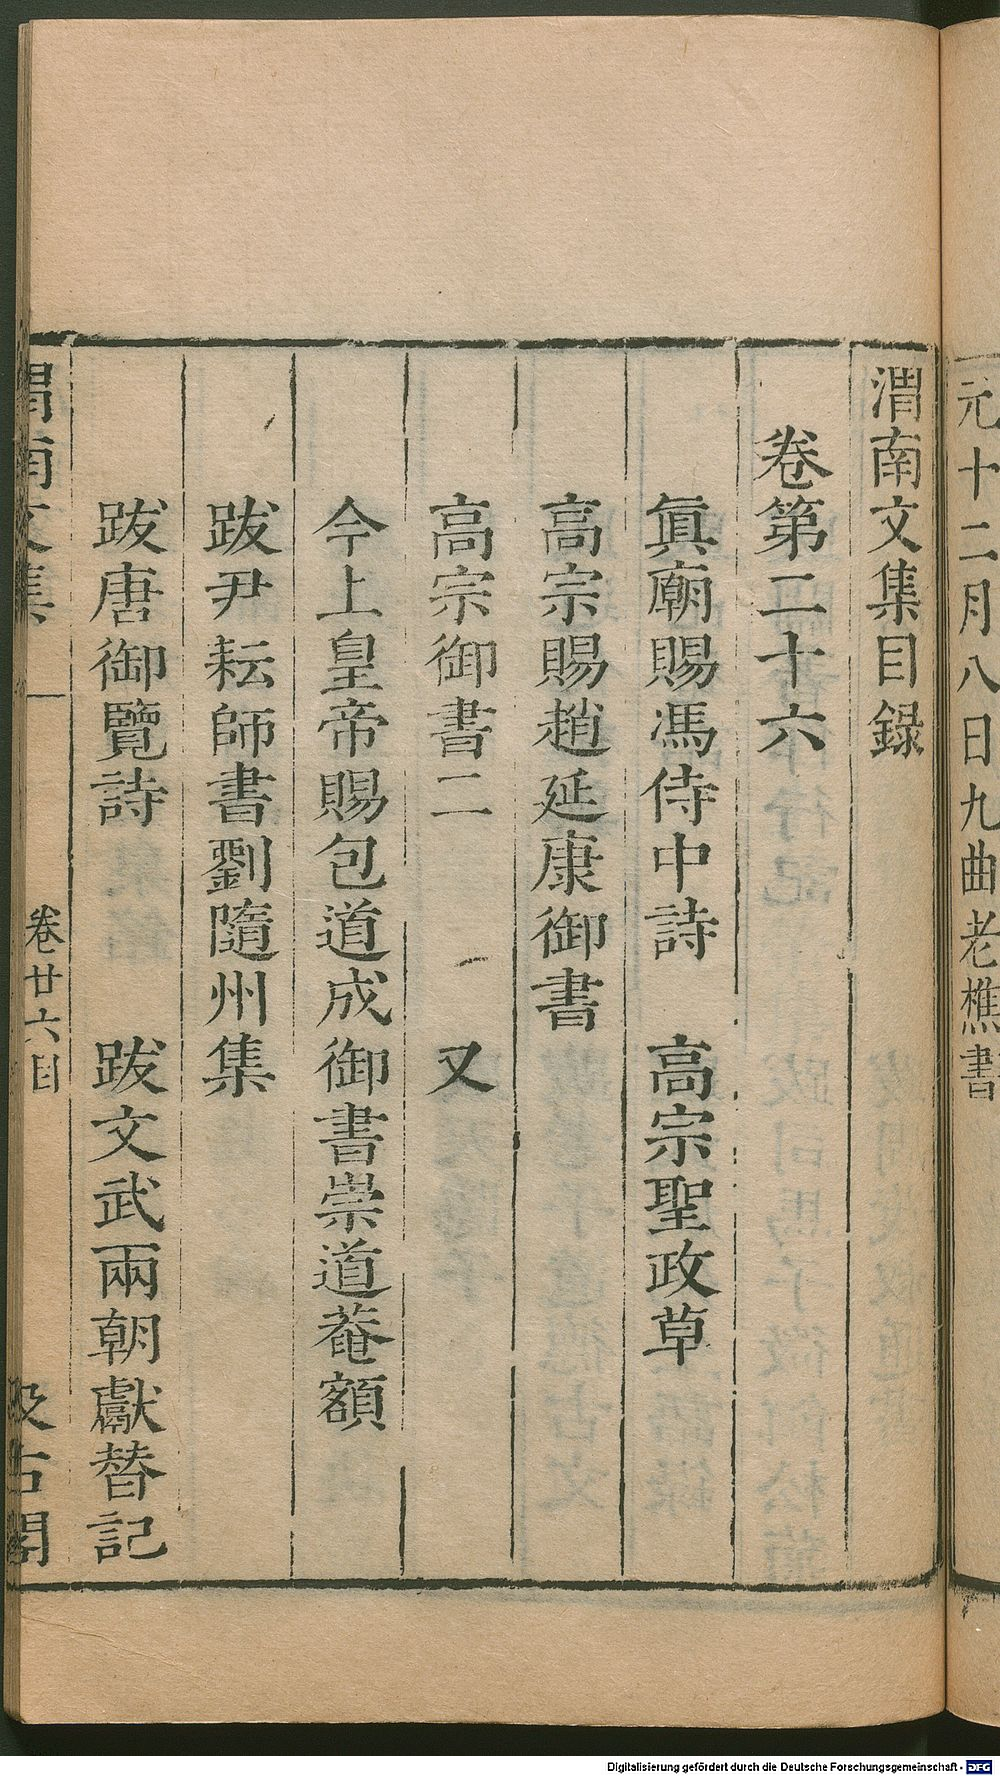 元十二月八日九曲老樵書
渭南文集目録
卷第二十六
眞廟賜馮侍中詩　高宗聖政草
高宗賜趙延康御書
高宗御書二　又
今上皇帝賜包道成御書崇道菴額
跋尹耘師書劉隨州集
跋唐御覽詩　跋文武兩朝獻替記
渭南文集　卷廿六目　汲古閣
Digitalisierung gefördert durch die Deutsche Forschungsgemeinschaft - DFG